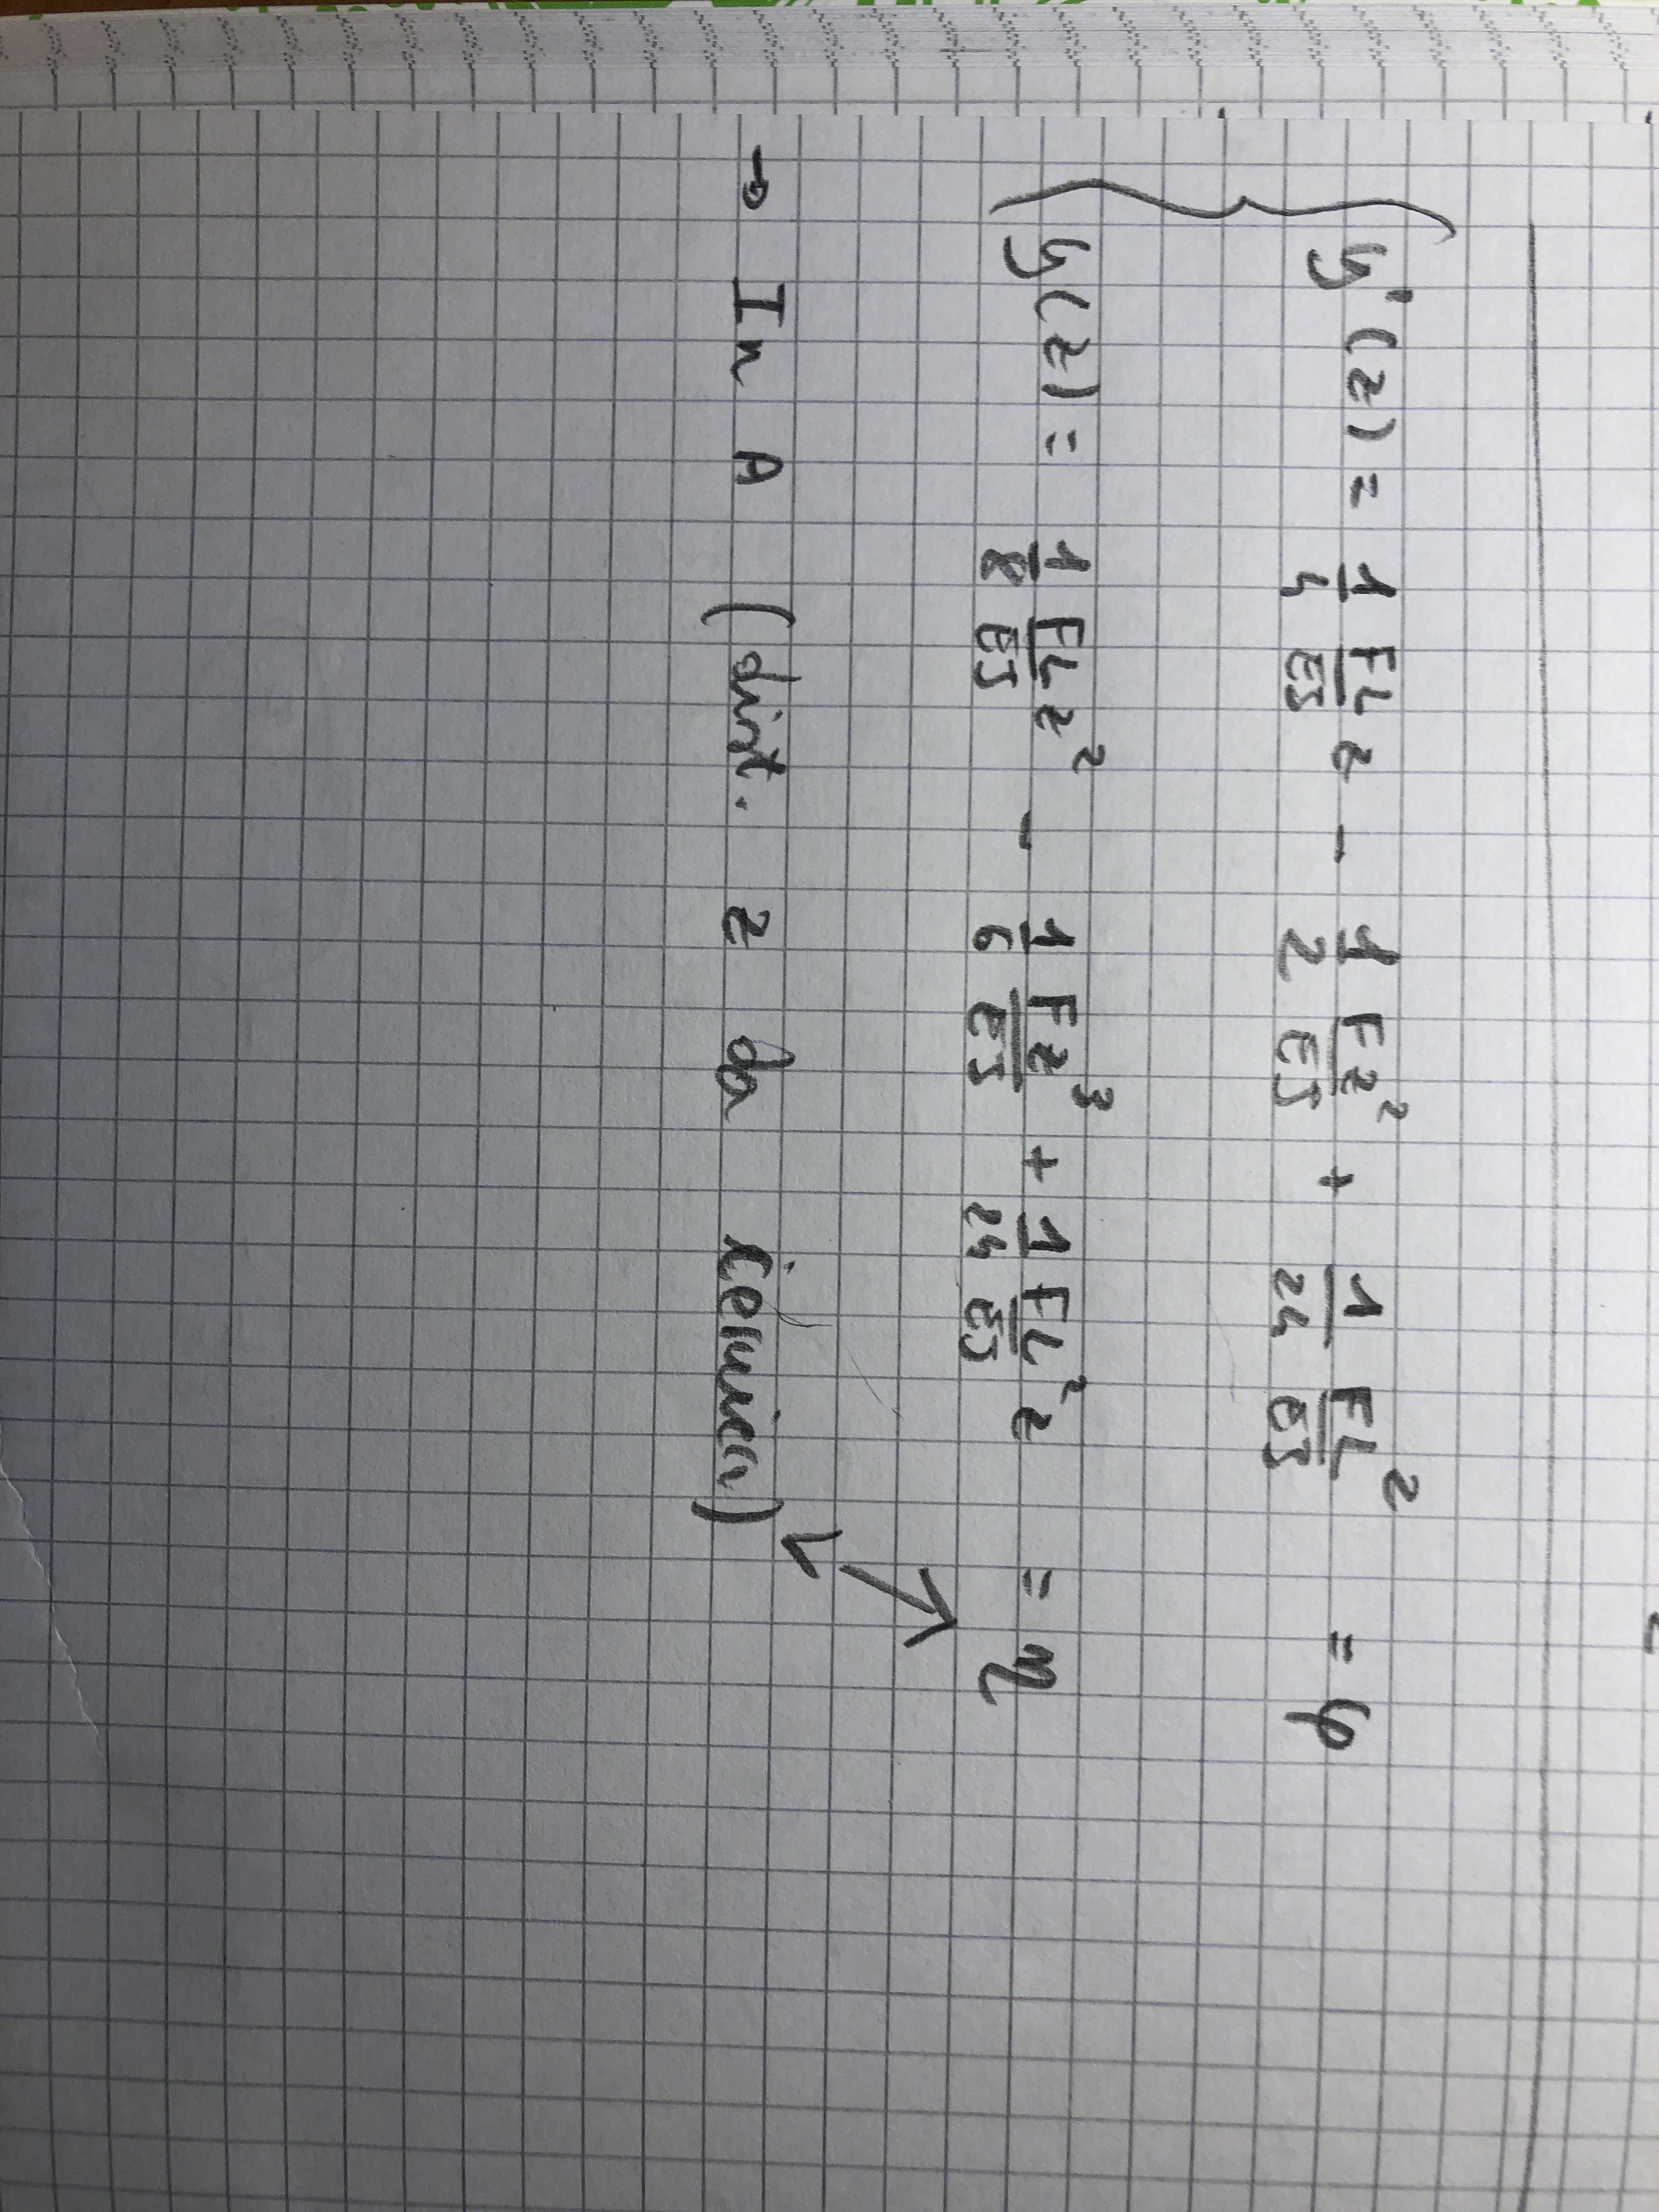 y'(z) = 1/4 FL/EJ z - 1/2 Fz²/EJ + 1/24 FL²/EJ = φ
y(z) = 1/8 FL/EJ z² - 1/6 Fz³/EJ + 1/24 FL²/EJ z = η
→ In A (dist. z da cerniera)